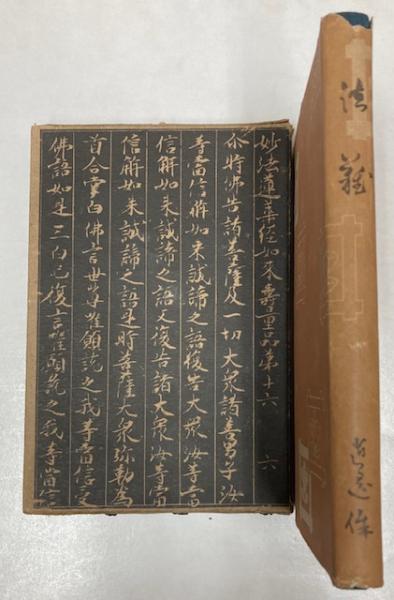 妙法蓮華経如来壽量品第十六 六
尒時佛告諸菩薩及一切大衆諸善男子汝
等當信解如来誠諦之語復告大衆汝等當
信解如来誠諦之語又復告諸大衆汝等當
信解如来誠諦之語是時菩薩大衆弥勒為
首合掌白佛言世尊唯願説之我等當信受
佛語如是三白已復言唯願説之我等當信
法難